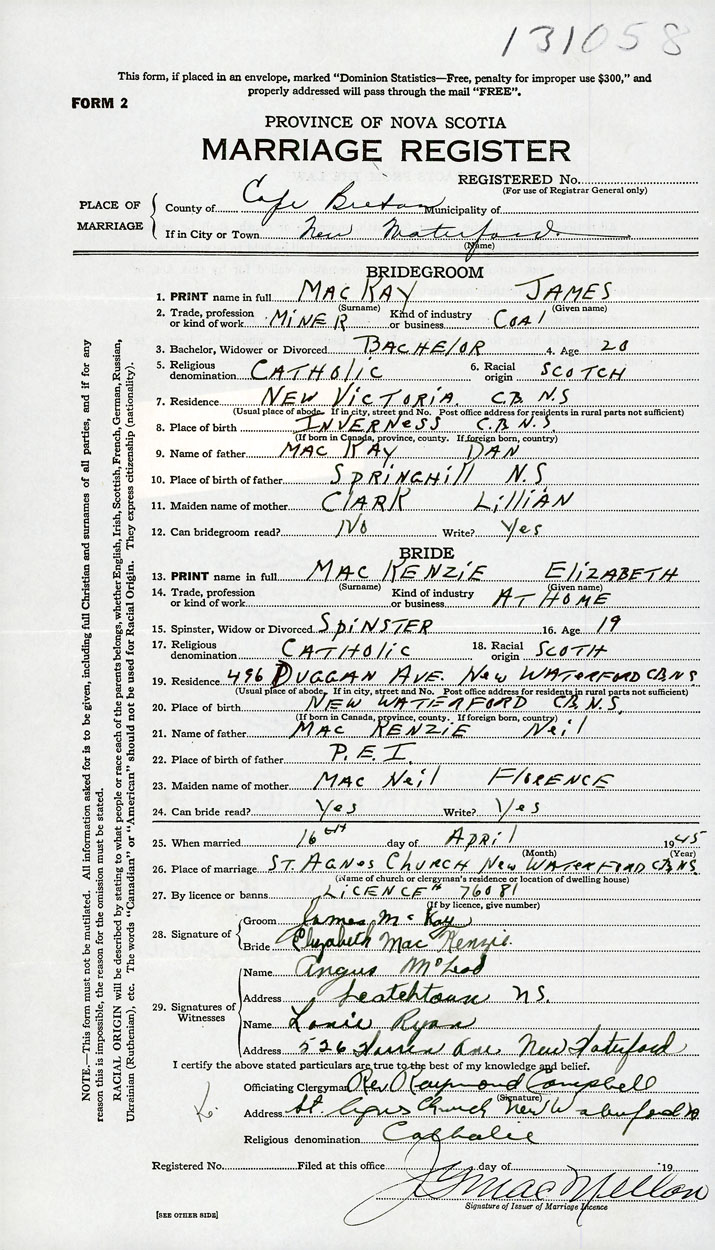 131058
This form, if placed in an envelope, marked "Dominion Statistics—Free, penalty for improper use $300," and
properly addressed will pass through the mail "FREE".
FORM 2
PROVINCE OF NOVA SCOTIA
MARRIAGE REGISTER
REGISTERED No.
(For use of Registrar General only)
PLACE OF MARRIAGE
County of Cape Breton Municipality of
If in City or Town New Waterford
(Name)
BRIDEGROOM
1. PRINT name in full MAC KAY JAMES
(Surname) (Given name)
2. Trade, profession or kind of work MINER Kind of industry or business COAl
3. Bachelor, Widower or Divorced BACHElOR 4. Age 20
5. Religious denomination CATHOlic 6. Racial origin SCOTCH
7. Residence NEW VICTORIA C.B. N.S
(Usual place of abode. If in city, street and No. Post office address for residents in rural parts not sufficient)
8. Place of birth INVERNESS C.B. N.S.
(If born in Canada, province, county. If foreign born, country)
9. Name of father MAC KAY DAN
10. Place of birth of father SPRINGHill N.S
11. Maiden name of mother ClARK LilliAN
12. Can bridegroom read? No Write? Yes
BRIDE
13. PRINT name in full MAC KENZIE ElIZABETH
(Surname) (Given name)
14. Trade, profession or kind of work Kind of industry or business AT HOME
15. Spinster, Widow or Divorced SPINSTER 16. Age 19
17. Religious denomination CATHOlic 18. Racial origin SCOTH
19. Residence 496 DUGGAN AVE. NEW WATERFORD CB NS
(Usual place of abode. If in city, street and No. Post office address for residents in rural parts not sufficient)
20. Place of birth NEW WATERFORD C.B. N.S.
(If born in Canada, province, county. If foreign born, country)
21. Name of father MAC KENZIE Neil
22. Place of birth of father P.E.I.
23. Maiden name of mother MAC Neil FlORENCE
24. Can bride read? Yes Write? Yes
25. When married 16th day of APRIl 1945
(Month) (Year)
26. Place of marriage ST. AGNES CHURCH NEW WATERFORD CB NS
(Name of church or clergyman's residence or location of dwelling house)
27. By licence or banns LICENCE # 76081
(If by licence, give number)
28. Signature of
Groom James McKay
Bride Elizabeth Mac Kenzie.
29. Signatures of Witnesses
Name Angus McLeod
Address NS.
Name Ryan
Address 526 Ave New Waterford
I certify the above stated particulars are true to the best of my knowledge and belief.
Officiating Clergyman Rev. Raymond Campbell
(Signature)
Address St. Agnes Church New Waterford
Religious denomination Catholic
Registered No. Filed at this office day of 19
J G MacMellon
Signature of Issuer of Marriage Licence
[SEE OTHER SIDE]
NOTE.—This form must not be mutilated. All information asked for is to be given, including full Christian and surnames of all parties, and if for any
reason this is impossible, the reason for the omission must be stated.
RACIAL ORIGIN will be described by stating to what people or race each of the parents belongs, whether English, Irish, Scottish, French, German, Russian,
Ukrainian (Ruthenian), etc. The words "Canadian" or "American" should not be used for Racial Origin. They express citizenship (nationality).